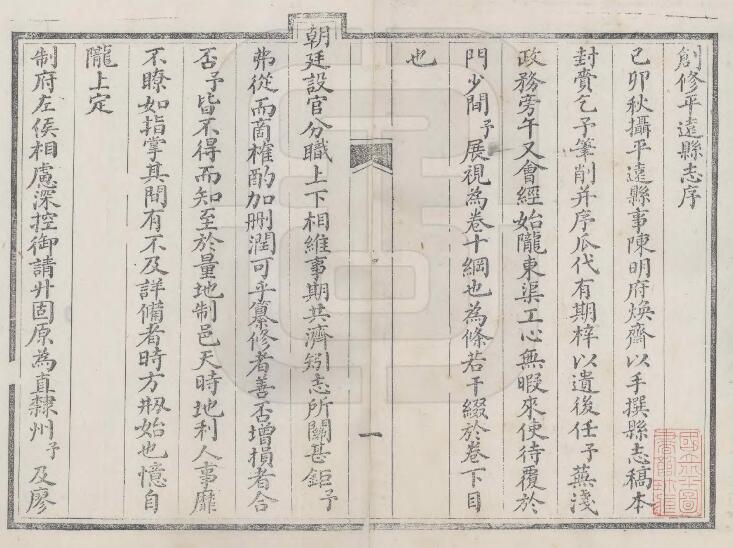 創修平遠縣志序
己卯秋攝平遠縣事陳明府煥齋以手撰縣志稿本
封賫乞予筆削并序瓜代有期梓以遺後任予蕪淺
政務旁午又會經始隴東渠工心無暇來使待覆於
門少間予展視為卷十綱也為條若干綴於卷下目
也
一
朝廷設官分職上下相維事期共濟矧志所關甚鉅予
弗從而啇榷酌加刪潤可乎纂修者善否增損者合
否予皆不得而知至於量地制邑天時地利人事靡
不瞭如指掌其間有不及詳備者時方剏始也憶自
隴上定
制府左侯相慮深控御請升固原為直隸州予及廖